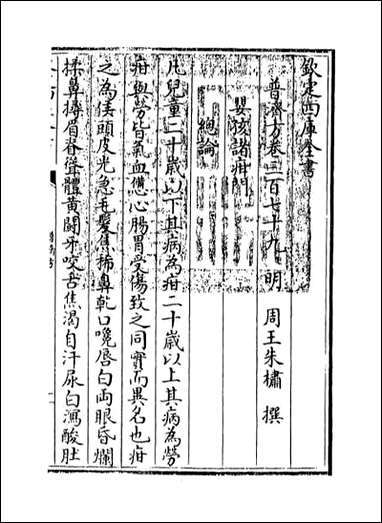 欽定四庫全書
普濟方卷三百七十九 明 周王朱橚 撰
嬰孩諸疳門
總論
凡兒童二十歲以下其病為疳二十歲以上其病為勞
疳與勞皆氣血憊心腸胃受傷致之同實而異名也疳
之為侯頭皮光急毛髮焦稀鼻乾口嚵唇白兩眼昏爛
揉鼻撏眉脊聳體黃鬬牙咬舌焦渴自汗尿白瀉酸肚